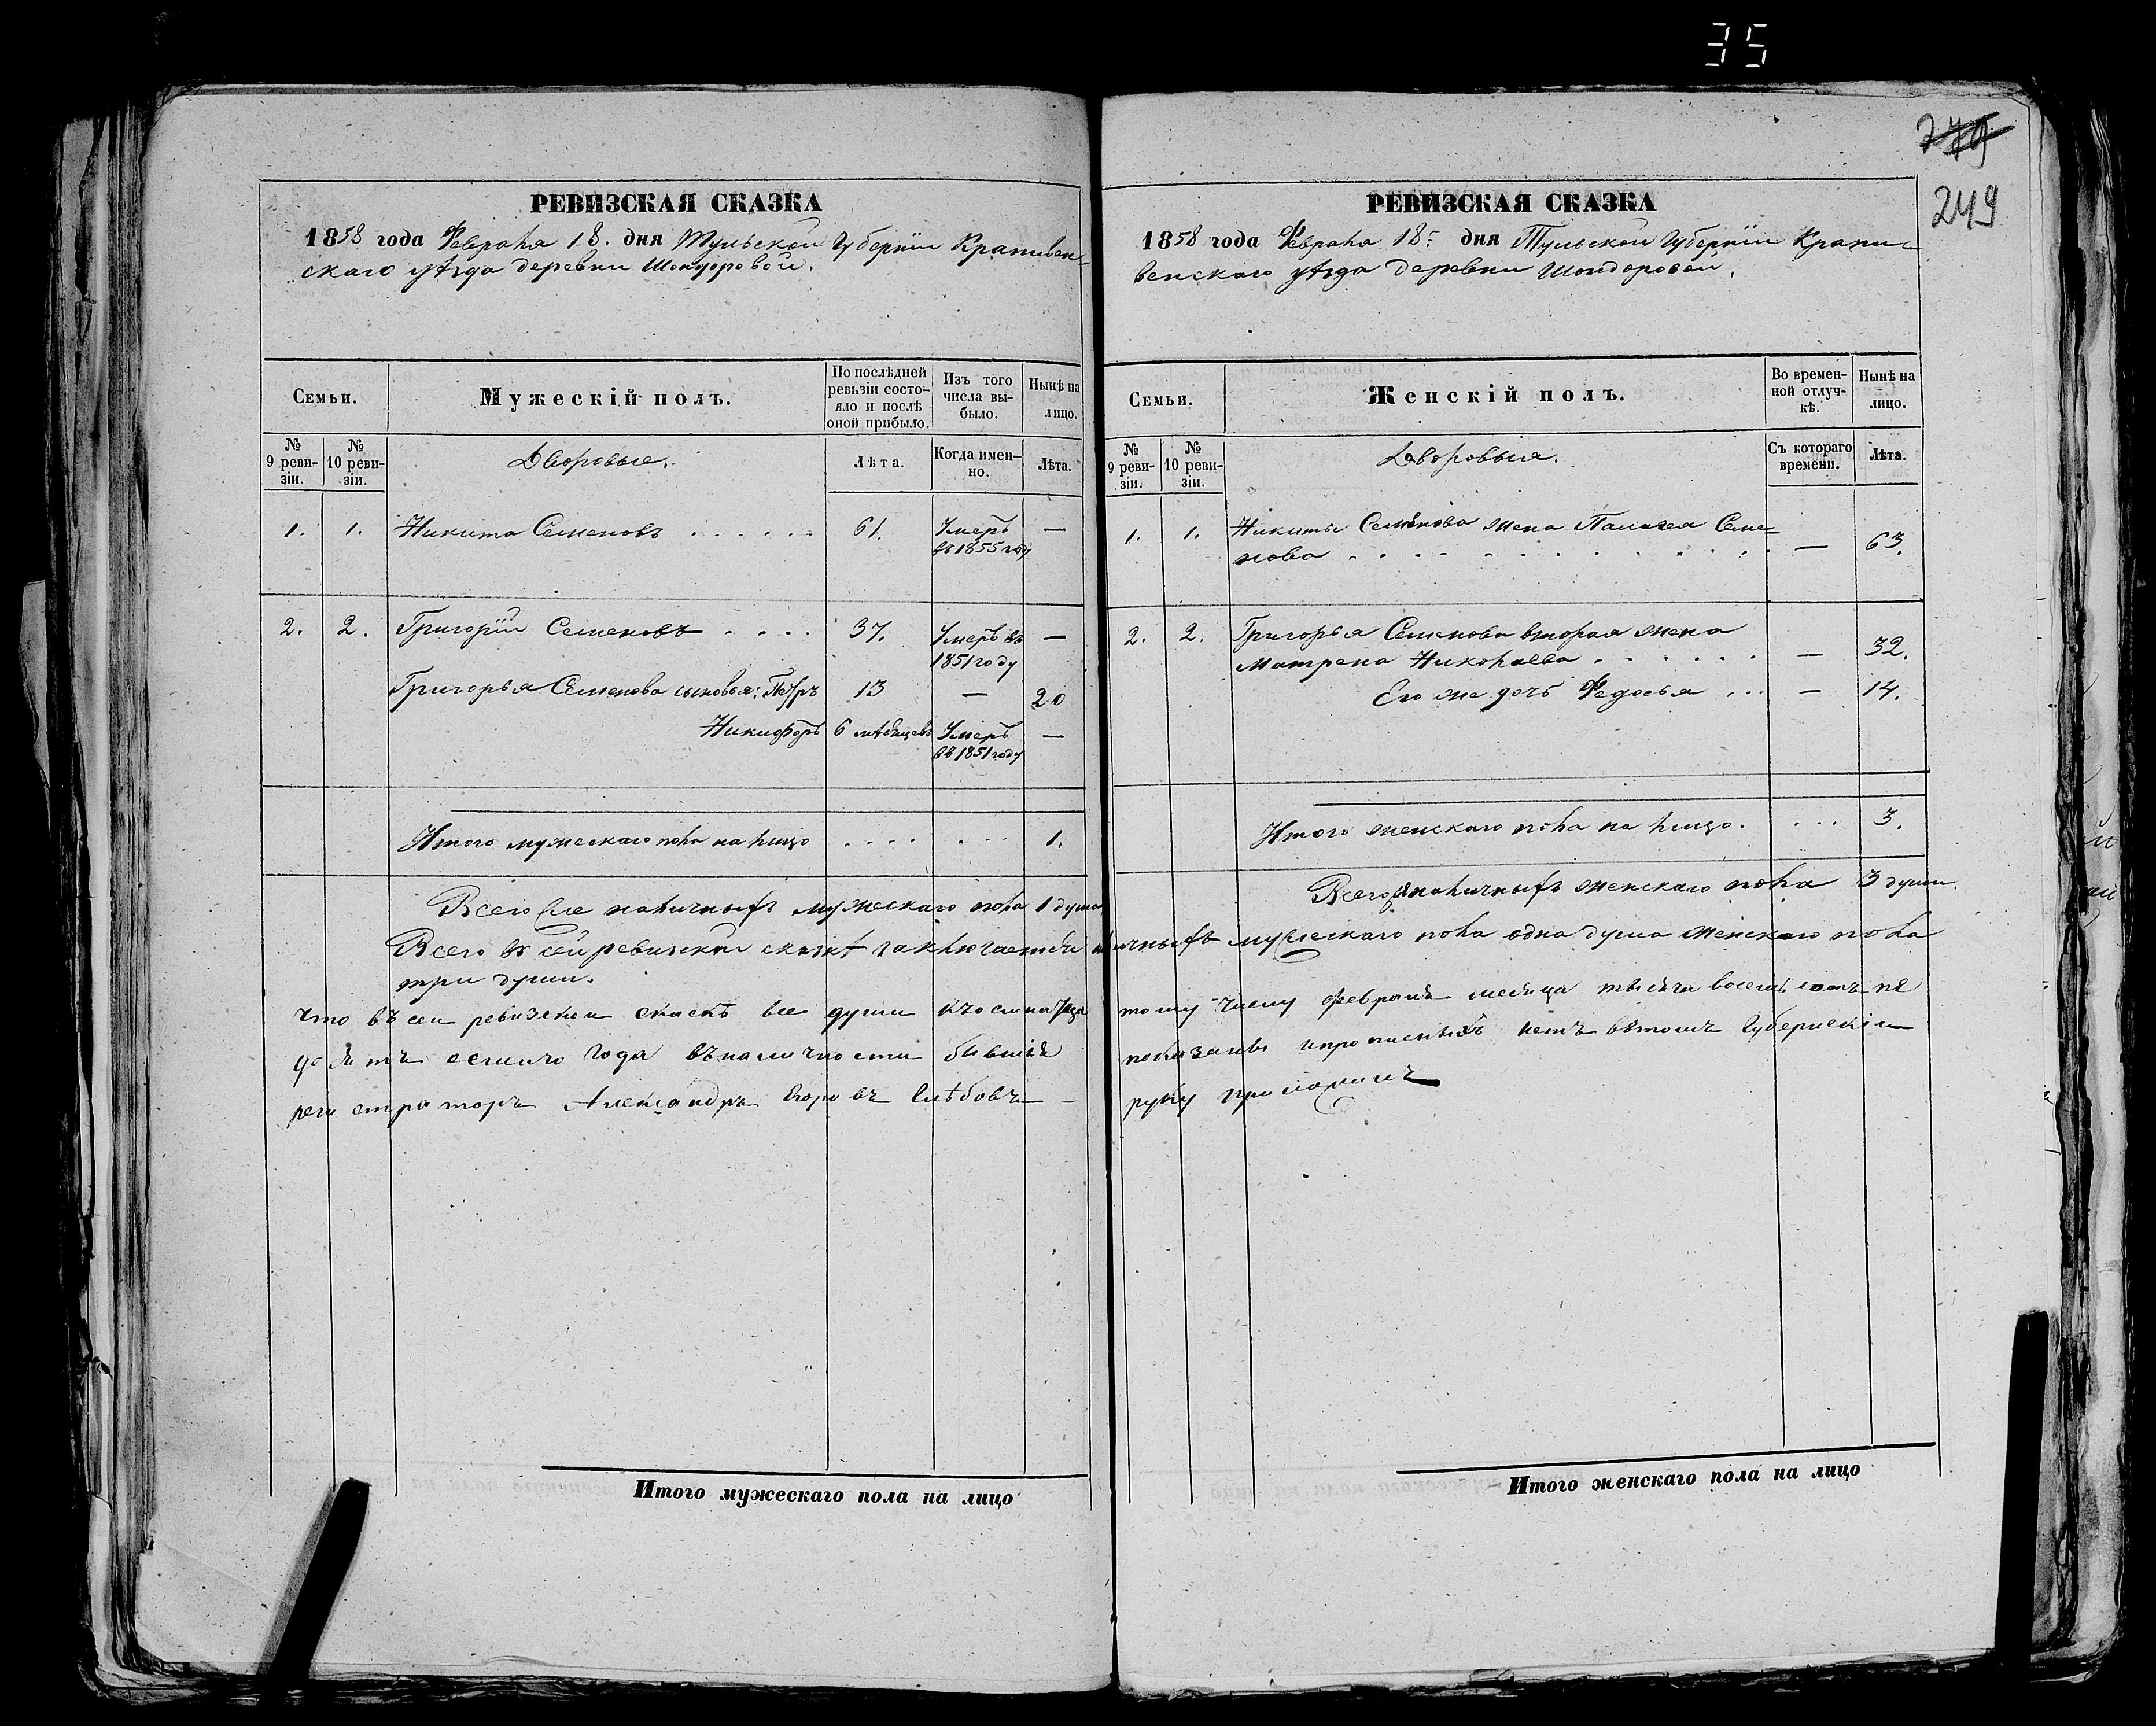 35
279
249
РЕВИЗСКАЯ СКАЗКА
1858 года Февраля 18. дня Тульской Губерніи Крапивен-
скаго уѣзда деревни Шондоровой.
Семьи.
Мужескій полъ.
По послѣдней ревизіи состо-
яло и послѣ
оной прибыло.
Изъ того
числа вы-
было.
Нынѣ на
лицо.
№ 9 реви-
зіи.
№ 10 реви-
зіи.
Дворовые.
Лѣта.
Когда имен-
но.
Лѣта.
1. 1. Никита Семеновъ . . . . . . 61. Умеръ въ 1855 году —
2. 2. Григорій Семеновъ . . . . 37. Умеръ въ 1851 году —
Григорья Семенова сыновья: Петръ 13 — 20
Никифоръ 6 мѣсяцевъ Умеръ въ 1851 году —
Итого мужескаго пола на лицо . . . . . . 1.
Всего наличныхъ мужескаго пола 1 душа
РЕВИЗСКАЯ СКАЗКА
1858 года Февраля 18. дня Тульской Губерніи Крапи-
венскаго уѣзда деревни Шондоровой.
Семьи.
Женскій полъ.
Во времен-
ной отлуч-
кѣ.
Нынѣ на
лицо.
№ 9 реви-
зіи.
№ 10 реви-
зіи.
Дворовыя.
Съ котораго
времени.
Лѣта.
1. 1. Никиты Семенова жена Палагея Семе-
нова . . . . . . . . . . — 63.
2. 2. Григорья Семенова вторая жена
Матрена Николаева . . . . . . — 32.
Его же дочь Федосья . . . — 14.
Итого женскаго пола на лицо. . . . 3.
Всего наличныхъ женскаго пола 3 души.
Всего въ сей ревизской сказкѣ заключается наличныхъ мужескаго пола одна душа женскаго пола
три души.
что въ сеи ревизскои скаскѣ все души къ осмнадца тому числу февраля месеца тысеча восемь сотъ пе
десятъ осмаго года въ наличности бывшія показаны и прописныхъ нетъ въ томъ Губернскіи
регистраторъ Александръ Глѣбовъ — руку приложилъ
Итого мужескаго пола на лицо
Итого женскаго пола на лицо